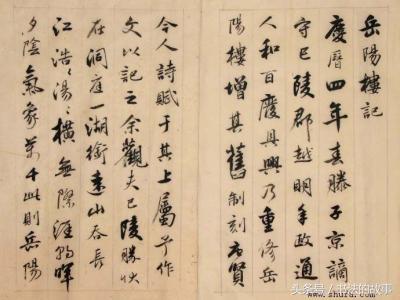 岳陽樓記
慶曆四年春滕子京謫
守巴陵郡越明年政通
人和百廢具興乃重修岳
陽樓增其舊制刻唐賢
今人詩賦于其上屬予作
文以記之余觀夫巴陵勝狀
在洞庭一湖銜遠山吞長
江浩〻湯〻橫無際涯朝暉
夕陰氣象萬千此則岳陽
头条号 / 书法的故事